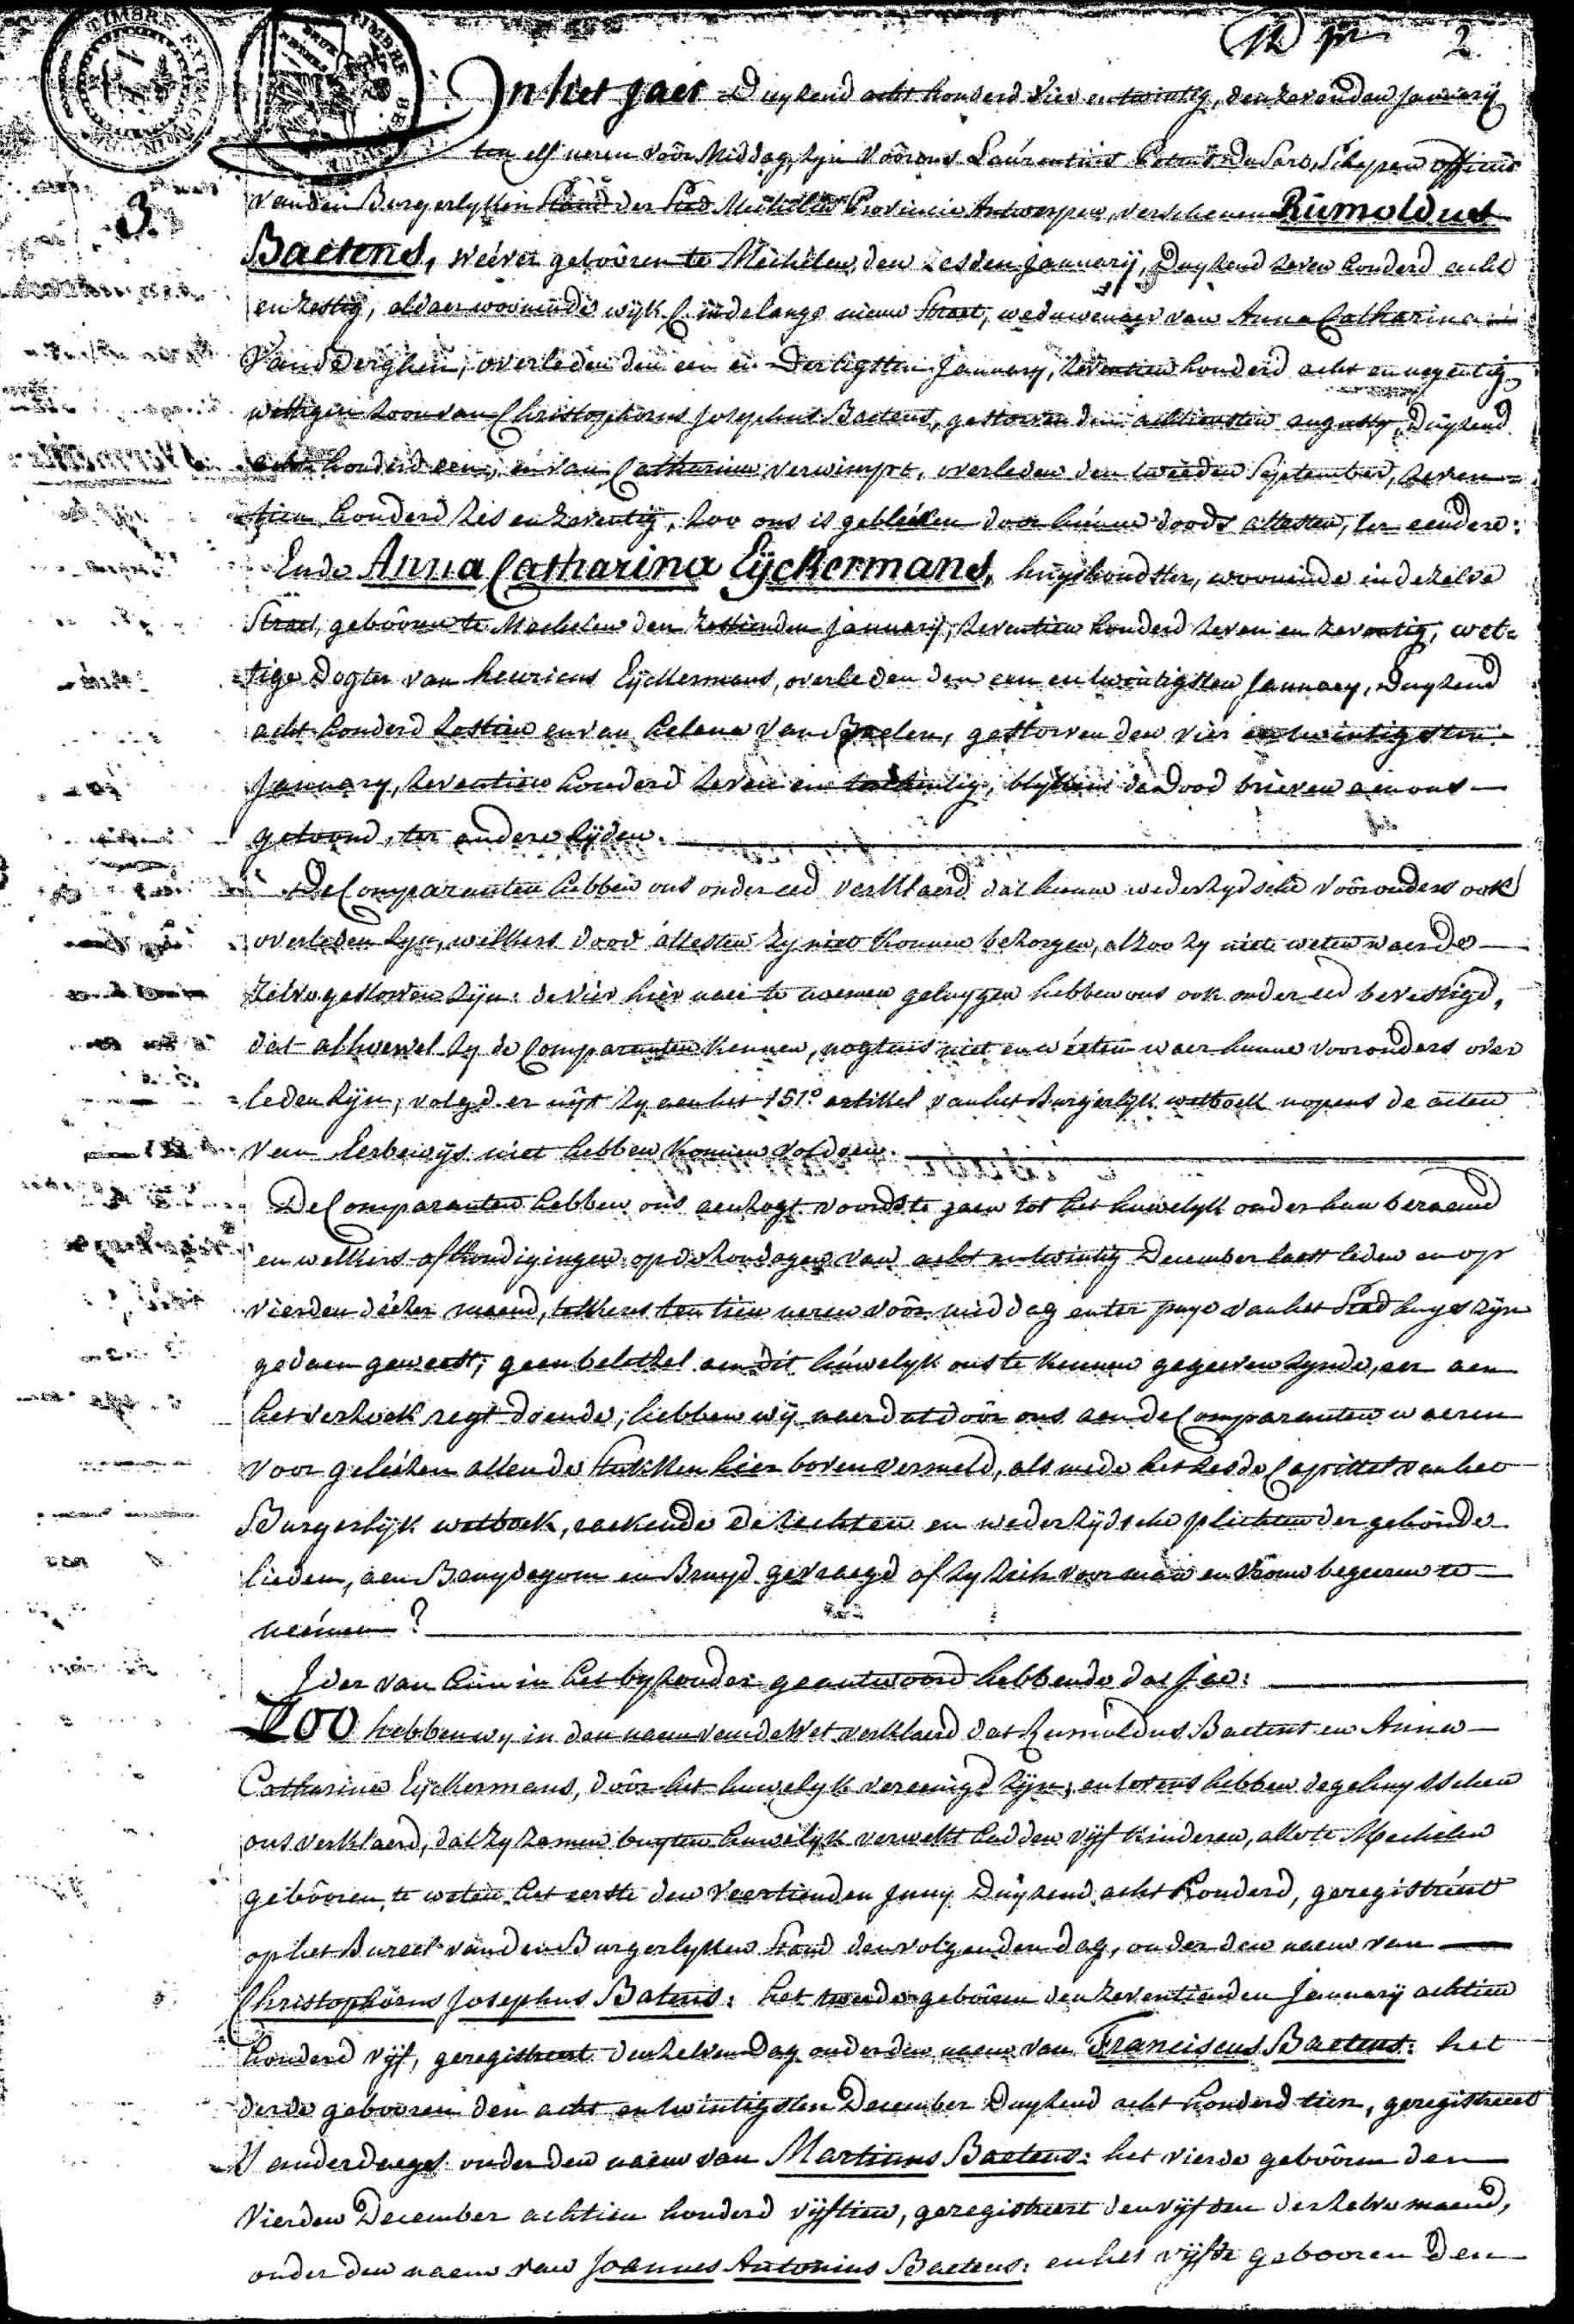 2
In het Jaer Duyzend acht honderd vier en twintig, den zevenden January
ten elf ueren voôr Middag, zyn voôr ons Laurentius Schepen officier
van den Burgerlyken Stand der Stad Mechelen Provincie Antwerpen, verschenen Rumoldus
3.
Baetens, wéever gebôoren te Mechelen, den zesden January, Duyzend zeven honderd acht
en zestig, aldaer woonende wyk C. in de lange nieuw Straet, weduwenaer van Anna Catharina
Vandderghen, overleden den een en dertigsten January, zeventien honderd acht en negentig,
wettigen zoon van Christophorus Josephus Baetens, gestorven den achtiensten augusty, Duyzend
acht honderd een, en van Catharina verwimpt, overleden den tweeden September, zeven=
tien honderd zes en zeventig, zoo ons is gebléken door hunne doods attesten, ter eendere:
Ende Anna Catharina Eyckermans, huyshoudster, woonende in dezelve
Straet, gebôoren te Mechelen den zestienden January, zeventien honderd zeven en zeventig, wet=
tige Dogter van henricus Eyckermans, overleden den een en twintigsten January, Duyzend
acht honderd zestien en van helena Van Baelen, gestorven den vier en twintigsten
January, zeventien honderd zeven en tachentig, blykens de dood brieven aen ons
getoond, ter andere zyden.
De Comparanten hebben ons onder eed verklaerd dat hunne wederzydsche voôrouders ook
overleden zyn, welkers dood attesten zy niet konnen bezorgen, alzoo zy niet weten waer de
zelve gestorven zyn: de vier hier naer te noemen getuygen hebben ons ook onder eed bevestigd,
dat alhoewel zy de Comparanten kennen, nogtans niet en wéeten waer hunne voorouders over
=leden zyn, volgd er uyt zy aen het 151e artikel van het Burgerlyk wetboek nopens de acten
van Eerbewys niet hebben konnen voldoen.
De Comparanten hebben ons aenzogt voords te gaen tot het huwelyk onder hun beraemd
en welkers afkondigingen op de zondagen van acht en twintig December laest leden en op
vierden dézer maend, telkens ten tien ueren voôr middag en ter puye van het Stad huys zyn
gedaen geweest; geen beletzel aen dit húwelyk ons te kennen gegeeven zynde, en aen
het verzoek regt doende, hebben wy naer dat dôor ons aen de Comparanten waeren
voor gelézen alle de stukken hier boven vermeld, als mede het zesde Capittel van het
Burgerlyk wetboek, raekende de rechten en wederzydsche plichten der gehúwde
lieden, aen Bruydegom en Bruyd gevraegd of zy zich voor man en vrouw begeeren te
neémen?
Ider van hun in het byzonder geantwoord hebbende dat Jae:
Zoo hebben wy in den naem van de Wet verklaerd dat Rumoldus Baetens en Anna
Catharina Eyckermans, dôor het huwelyk vereenigd zyn; en tevens hebben de gehuysschen
ons verklaerd, dat zy zamen buyten huwelyk verwekt hadden vyf kinderen, alle te Mechelen
gebôoren, te weten het eerste den veertienden Juny Duyzend acht honderd, geregistreérd
op het Bureel van den Burgerlyken Stand den volgenden dag, onder den naem van
Christophorus Josephus Batens: het tweede gebôoren den zeventienden January achtien
honderd vyf, geregistreert denzelven Dag onder den naem van Franciscus Baetens: het
derde gebooren den acht en twintigsten December Duyzend acht honderd tien, geregistreert
's anderdaegs onder den naem van Martinus Baetens: het vierde gebôoren den
vierden December achtien honderd vyftien, geregistreert den vyfden derzelve maend,
onder den naem van Joannes Antonius Baetens: en het vyfde gebooren den